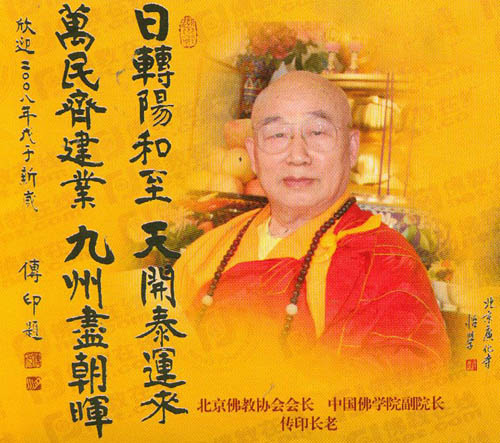 日轉陽和至 天開泰運來
萬民齊建業 九州盡朝暉
欣迎二〇〇八年戊子新歲
傳印題
北京廣化寺
怡學
北京佛教协会会长 中国佛学院副院长
传印长老